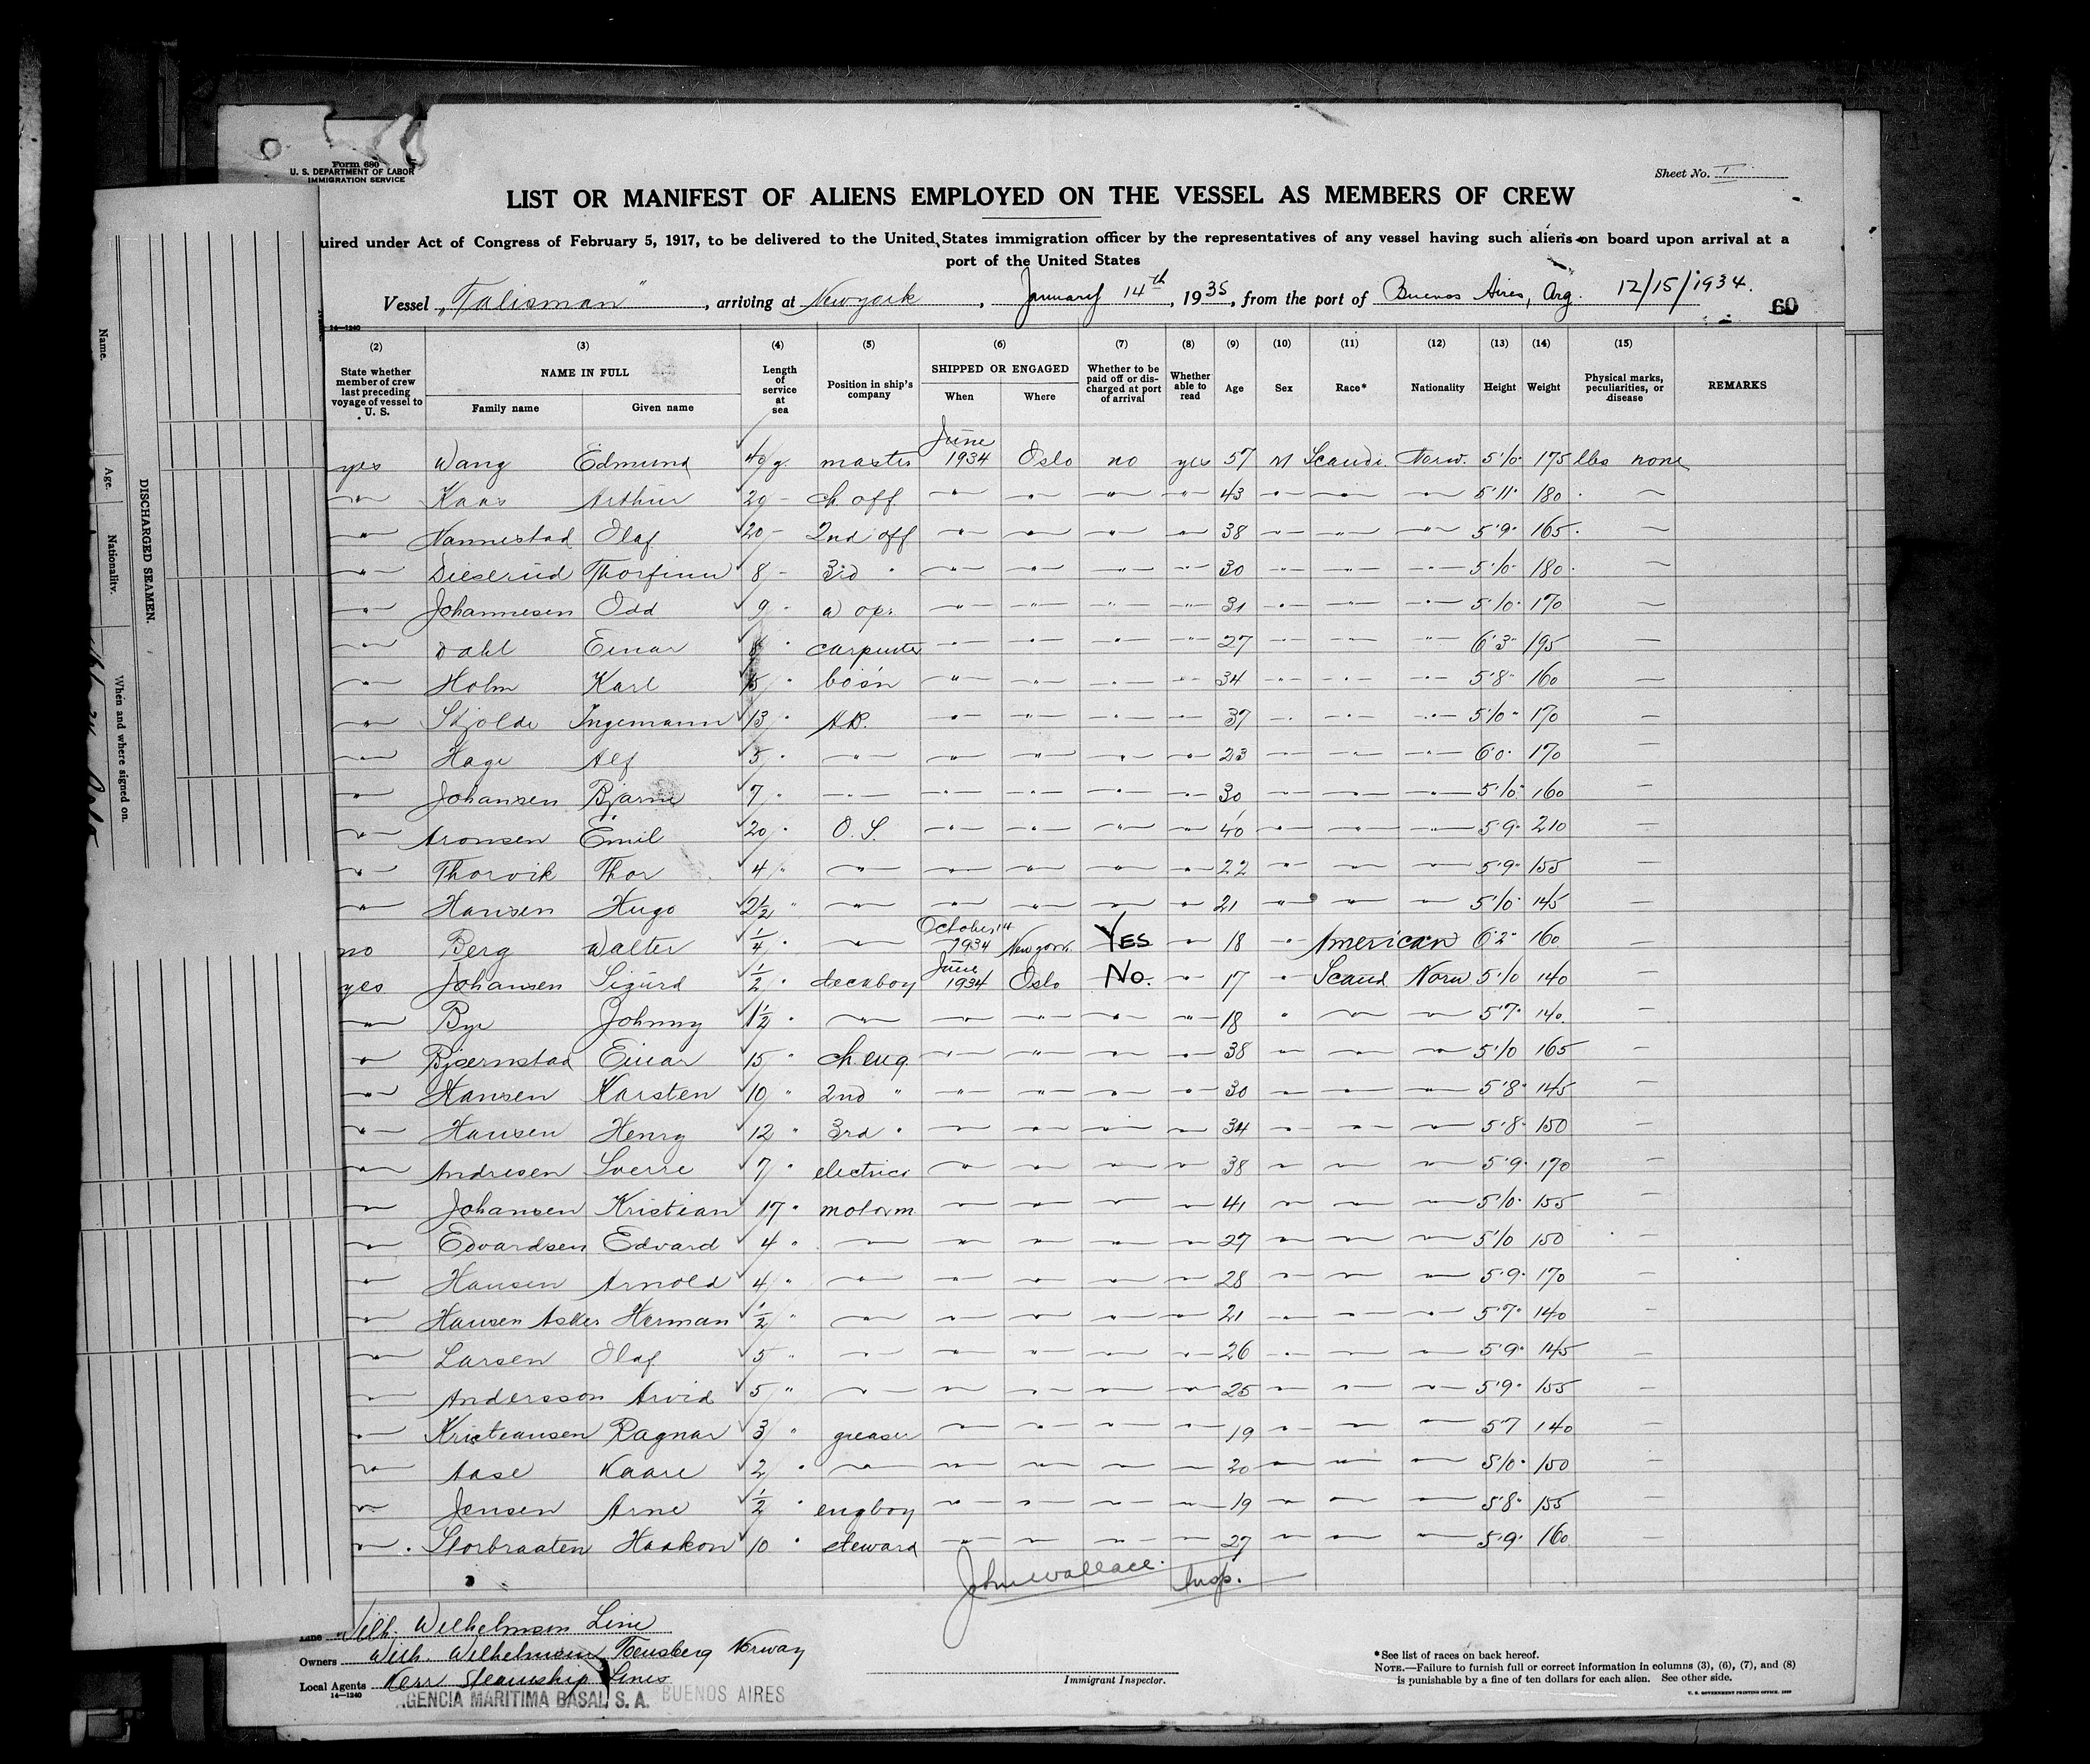 Form 680
U. S. DEPARTMENT OF LABOR
IMMIGRATION SERVICE
Sheet No. I
LIST OR MANIFEST OF ALIENS EMPLOYED ON THE VESSEL AS MEMBERS OF CREW
uired under Act of Congress of February 5, 1917, to be delivered to the United States immigration officer by the representatives of any vessel having such aliens on board upon arrival at a
port of the United States
Vessel "Talisman", arriving at New york, January 14th, 1935, from the port of Buenos Aires, Arg. 12/15/1934.
60
14—1240
(2) (3) (4) (5) (6) (7) (8) (9) (10) (11) (12) (13) (14) (15)
State whether member of crew last preceding voyage of vessel to U. S.
NAME IN FULL
Family name Given name
Length of service at sea
Position in ship's company
SHIPPED OR ENGAGED
When Where
Whether to be paid off or discharged at port of arrival
Whether able to read
Age Sex Race* Nationality Height Weight
Physical marks, peculiarities, or disease
REMARKS
yes Wang Edmund 40 y. master June 1934 Oslo no yes 57 M Scandi. Norw. 5'10" 175 lbs none
" Kaas Arthur 29 - ch. off. " " " " 43 " " " 5'11" 180 —
" Nannestad Olaf 20 - 2nd off " " " " 38 " " " 5'9" 165 —
" Thorfinn 8 - 3rd " " " " " 30 " " " 5'10" 180 —
" Johannesen Odd 9 " w op. " " " " 31 " " " 5'10" 170 —
" Dahl Einar 8 " carpenter " " " " 27 " " " 6'3" 195 —
" Holm Karl 15 " bo's'n " " " " 34 " " " 5'8" 160 —
" Skjolde Ingemann 13 " A.B. " " " " 37 " " " 5'10" 170 —
" Hage Alf 5 " " " " " " 23 " " " 6'0" 170 —
" Johansen Bjarne 7 " " " " " " 30 " " " 5'10" 160 —
" Aronsen Emil 20 " O. S. " " " " 40 " " " 5'9" 210 —
" Thorvik Thor 4 " " " " " " 22 " " " 5'9" 155 —
" Hansen Hugo 2½ " " " " " " 21 " " " 5'10" 145 —
no Berg Walter ¼ " " October 14 1934 New york YES " 18 " American 6'2" 160 —
yes Johansen Sigurd ½ " deckboy June 1934 Oslo No. " 17 " Scand Norw 5'10 140 —
" Bye Johnny 1½ " " " " " " 18 " " " 5'7" 140 —
" Bjoernstad Einar 15 " ch. eng. " " " " 38 " " " 5'10 165 —
" Hansen Karsten 10 " 2nd " " " " " 30 " " " 5'8" 145 —
" Hansen Henry 12 " 3rd " " " " " 34 " " " 5'8" 150 —
" Andresen Sverre 7 " electrici " " " " 38 " " " 5'9" 170 —
" Johansen Kristian 17 " motorm " " " " 41 " " " 5'10" 155 —
" Edvardsen Edvard 4 " " " " " " 27 " " " 5'10 150 —
" Hansen Arnold 4 " " " " " " 28 " " " 5'9" 170 —
" Hansen Asker Herman ½ " " " " " " 21 " " " 5'7" 140 —
" Larsen Olaf 5 " " " " " " 26 " " " 5'9" 145 —
" Andersson Arvid 5 " " " " " " 25 " " " 5'9" 155 —
" Kristiansen Ragnar 3 " greaser " " " 19 " " " 5'7 140 —
" Aase Kaare 2 " " " " " " 20 " " " 5'10" 150 —
" Jensen Arne ½ " engboy " " " " 19 " " " 5'8" 155 —
" Storbraaten Haakon 10 " steward " " " " 27 " " " 5'9" 160 —
John Wallace. Insp.
Line Wilh. Wilhelmsen Line
Owners Wilh. Wilhelmsen, Toensberg Norway
Local Agents Kerr Steamship Lines
14—1240
AGENCIA MARITIMA BASAL, S. A. BUENOS AIRES
Immigrant Inspector.
*See list of races on back hereof.
NOTE.—Failure to furnish full or correct information in columns (3), (6), (7), and (8)
is punishable by a fine of ten dollars for each alien. See other side.
U. S. GOVERNMENT PRINTING OFFICE
DISCHARGED SEAMEN.
Name. Age. Nationality. When and where signed on.